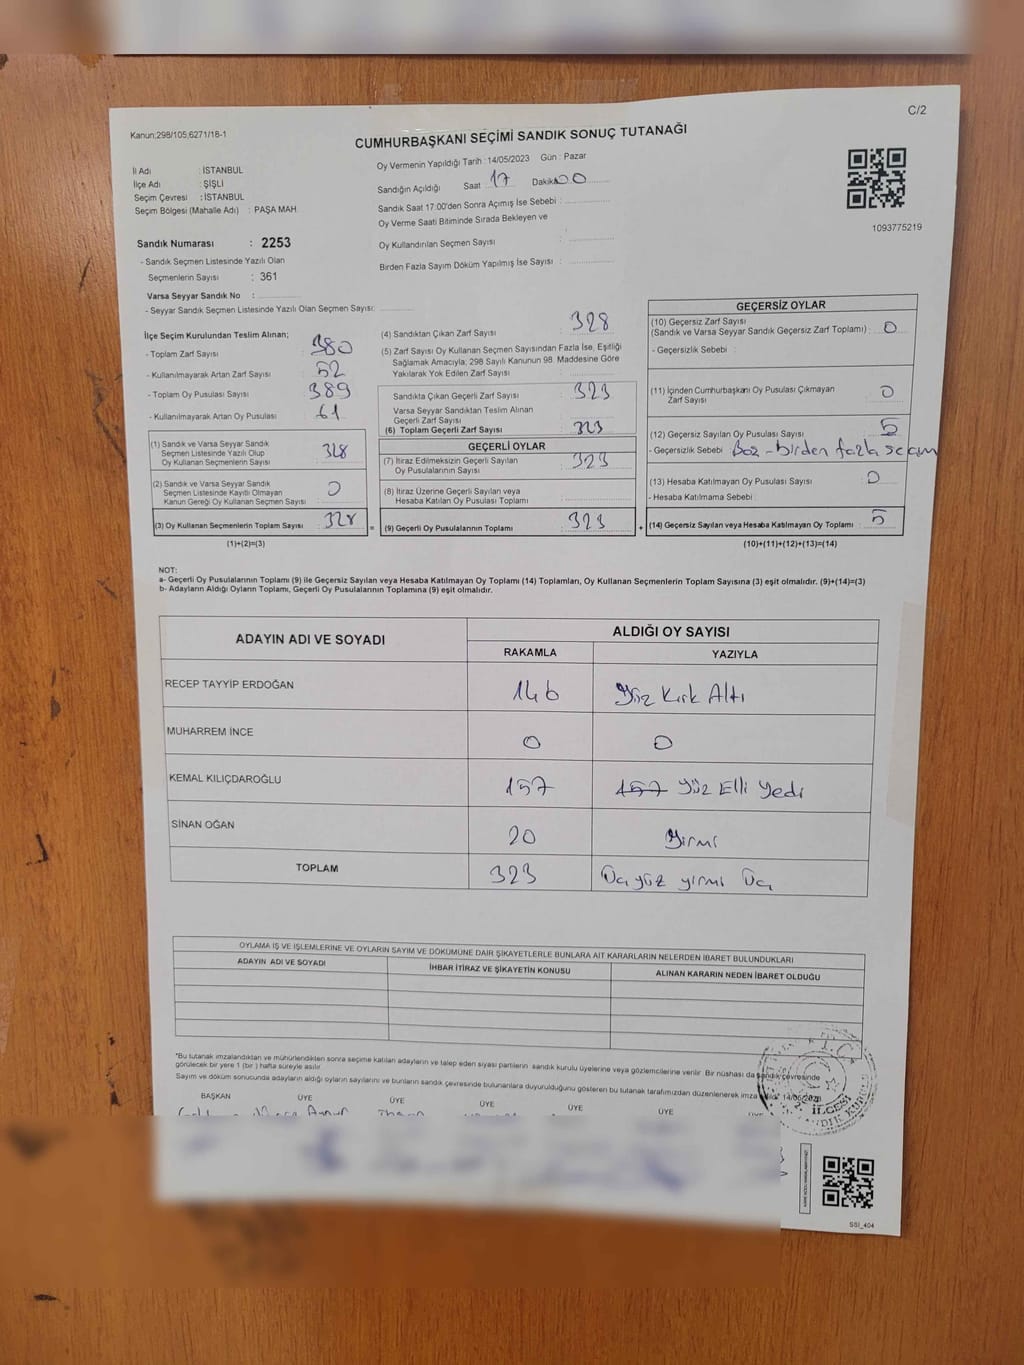 C/2
Kanun;298/105;6271/18-1
CUMHURBAŞKANI SEÇİMİ SANDIK SONUÇ TUTANAĞI
İl Adı : İSTANBUL
İlçe Adı : ŞİŞLİ
Seçim Çevresi : İSTANBUL
Seçim Bölgesi (Mahalle Adı) : PAŞA MAH.
Oy Vermenin Yapıldığı Tarih : 14/05/2023 Gün : Pazar
Sandığın Açıldığı Saat 17 Dakika 00
Sandık Saat 17:00'den Sonra Açımış İse Sebebi :
Oy Verme Saati Bitiminde Sırada Bekleyen ve
Oy Kullandırılan Seçmen Sayısı :
Birden Fazla Sayım Döküm Yapılmış İse Sayısı :
1093775219
Sandık Numarası : 2253
- Sandık Seçmen Listesinde Yazılı Olan
Seçmenlerin Sayısı : 361
Varsa Seyyar Sandık No :
- Seyyar Sandık Seçmen Listesinde Yazılı Olan Seçmen Sayısı:
İlçe Seçim Kurulundan Teslim Alınan;
- Toplam Zarf Sayısı : 380
- Kullanılmayarak Artan Zarf Sayısı : 52
- Toplam Oy Pusulası Sayısı : 389
- Kullanılmayarak Artan Oy Pusulası : 61
(1) Sandık ve Varsa Seyyar Sandık
Seçmen Listesinde Yazılı Olup
Oy Kullanan Seçmenlerin Sayısı : 328
(2) Sandık ve Varsa Seyyar Sandık
Seçmen Listesinde Kayıtlı Olmayan
Kanun Gereği Oy Kullanan Seçmen Sayısı : 0
(3) Oy Kullanan Seçmenlerin Toplam Sayısı : 328 =
(1)+(2)=(3)
(4) Sandıktan Çıkan Zarf Sayısı : 328
(5) Zarf Sayısı Oy Kullanan Seçmen Sayısından Fazla İse, Eşitliği
Sağlamak Amacıyla; 298 Sayılı Kanunun 98. Maddesine Göre
Yakılarak Yok Edilen Zarf Sayısı :
Sandıkta Çıkan Geçerli Zarf Sayısı : 323
Varsa Seyyar Sandıktan Teslim Alınan
Geçerli Zarf Sayısı :
(6) Toplam Geçerli Zarf Sayısı : 323
GEÇERLİ OYLAR
(7) İtiraz Edilmeksizin Geçerli Sayılan
Oy Pusulalarının Sayısı : 323
(8) İtiraz Üzerine Geçerli Sayılan veya
Hesaba Katılan Oy Pusulası Toplamı :
(9) Geçerli Oy Pusulalarının Toplamı : 323 +
GEÇERSİZ OYLAR
(10) Geçersiz Zarf Sayısı
(Sandık ve Varsa Seyyar Sandık Geçersiz Zarf Toplamı) : 0
- Geçersizlik Sebebi :
(11) İçinden Cumhurbaşkanı Oy Pusulası Çıkmayan
Zarf Sayısı : 0
(12) Geçersiz Sayılan Oy Pusulası Sayısı : 5
- Geçersizlik Sebebi : Boz - birden fazla seçim
(13) Hesaba Katılmayan Oy Pusulası Sayısı : 0
- Hesaba Katılmama Sebebi :
(14) Geçersiz Sayılan veya Hesaba Katılmayan Oy Toplamı : 5
(10)+(11)+(12)+(13)=(14)
NOT:
a- Geçerli Oy Pusulalarının Toplamı (9) ile Geçersiz Sayılan veya Hesaba Katılmayan Oy Toplamı (14) Toplamları, Oy Kullanan Seçmenlerin Toplam Sayısına (3) eşit olmalıdır. (9)+(14)=(3)
b- Adayların Aldığı Oyların Toplamı, Geçerli Oy Pusulalarının Toplamına (9) eşit olmalıdır.
ADAYIN ADI VE SOYADI ALDIĞI OY SAYISI
RAKAMLA YAZIYLA
RECEP TAYYİP ERDOĞAN 146 Yüz Kırk Altı
MUHARREM İNCE 0 0
KEMAL KILIÇDAROĞLU 157 157 Yüz Elli Yedi
SİNAN OĞAN 20 Yirmi
TOPLAM 323 Üç yüz yirmi Üç
OYLAMA İŞ VE İŞLEMLERİNE VE OYLARIN SAYIM VE DÖKÜMÜNE DAİR ŞİKAYETLERLE BUNLARA AİT KARARLARIN NELERDEN İBARET BULUNDUKLARI
ADAYIN ADI VE SOYADI İHBAR İTİRAZ VE ŞİKAYETİN KONUSU ALINAN KARARIN NEDEN İBARET OLDUĞU
"Bu tutanak imzalandıktan ve mühürlendikten sonra seçime katılan adayların ve talep eden siyasi partilerin sandık kurulu üyelerine veya gözlemcilerine verilir. Bir nüshası da sandık çevresinde
görülecek bir yere 1 (bir) hafta süreyle asılır.
Sayım ve döküm sonucunda adayların aldığı oyların sayılarını ve bunların sandık çevresinde bulunanlara duyurulduğunu gösteren bu tutanak tarafımızdan düzenlenerek imza 14/05/2023
BAŞKAN ÜYE ÜYE ÜYE ÜYE ÜYE ÜYE
T.C.
İLÇESİ
SSI_404